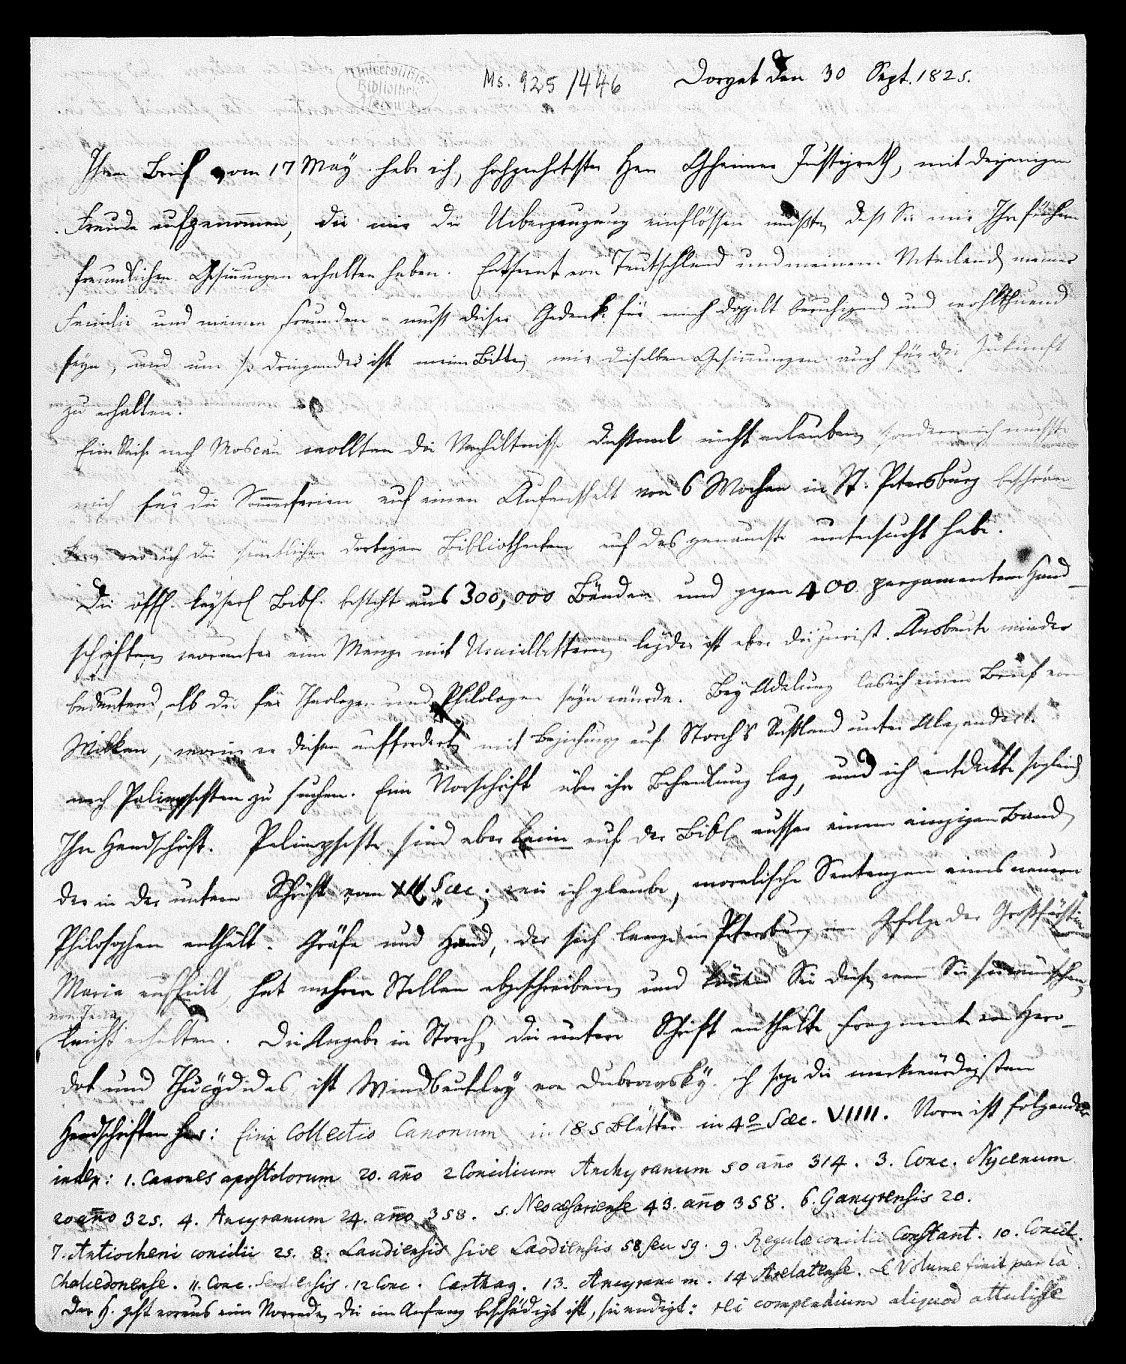 Universitäts-
Bibliothek
Ms. 925/446
Dorpat den 30 Sept. 1825.
Ihren Brief vom 17 May habe ich, hochgeehrtester Herr Geheimer Justizrath, mit derjenigen
Freude aufgenommen, die mir die Ueberzeugung einflössen mußte, daß Sie mir Ihre frühern
freundlichen Gesinnungen erhalten haben. Entfernt von Teutschland und meinem Vaterland, meiner
Familie und meinen Freunden muß dieser Gedenke für mich doppelt beruhigend und wohlthuend
seyn, und um so dringender ist meine Bitte, mir dieselben Gesinnungen auch für die Zukunft
zu erhalten.
Eine Reise nach Moscau wollten die Verhältnisse diesmal nicht erlauben, sondern ich mußte
mich für die Sommerferien auf einen Aufenthalt von 6 Wochen in St. Petersburg beschränken
die sämtlichen dortigen Bibliotheken auf das genauste untersucht habe.
Die öffl. kayserl. Bibl. besteht aus 300,000 Bänden und gegen 400 pergamentene Hand-
schriften, worunter eine Menge mit Uncialbettern, leyder ist aber die jurist. Ausbeute minder
bedeutend, als die für Theologen und Philologen seyn würde. Bey Adelung las ich einen Brief von
Wilken, worin er diesen auffordert, mit Beziehung auf Storch's Rußland unter Alexander I.
nach Palimpsesten zu suchen. Eine Vorschrift über ihre Behandlung lag, und ich entdeckte sogleich
Ihre Handschrift. Palimpseste sind aber keine auf der Bibl. ausser einem einzigen Band,
der in der untern Schrift vom Saec. wie ich glaube, moralische Sentenzen eines neuern
Philosophen enthält. Gräfe und Hand, der sich lange in Petersburg im Gefolge der Großfürstin
Maria aufhielt, hat mehrere Stellen abgeschrieben, und Sie diese, wenn Sie sie wünschen,
von Jena
leicht erhalten. Die Angabe in Storch, die untere Schrift enthalte Fragmente von Hero-
dot und Thucydides ist Windbeutley von Dubrowsky. Ich setze die merkwürdigsten
Handschriften her: Eine Collectio Canonum in 185 Blätter in 4o Saec. VIIII. Vorn ist folgender
index: 1. Canones apostolorum 20. año 2 Concilium Anchyranum 50 año 314. 3. Conc. Nycenum
20 año 325. 4. Ancyranum 24. año 358. 5. Neocesariense 43. año 358. 6. Gangrensis 20.
7. Antiocheni concilii 25. 8. Laudiensis sive Laodiensis 58 seu 59. 9. Regulae concilii Constant. 10. Concil.
Chalcedonense. 11. Conc. 12 Conc. Carthag. 13. 14 Arelatense. Le Volume finit par la.
Der H. geht voraus eine Vorrede, die im Anfang beschädigt ist, sie endigt: compendium aliquod attulisse